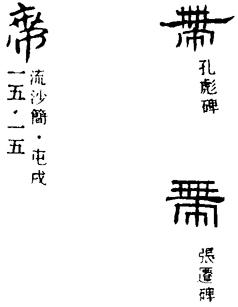 帶
孔彪碑
帶
張遷碑
帶
流沙簡·屯戍
一五·一五